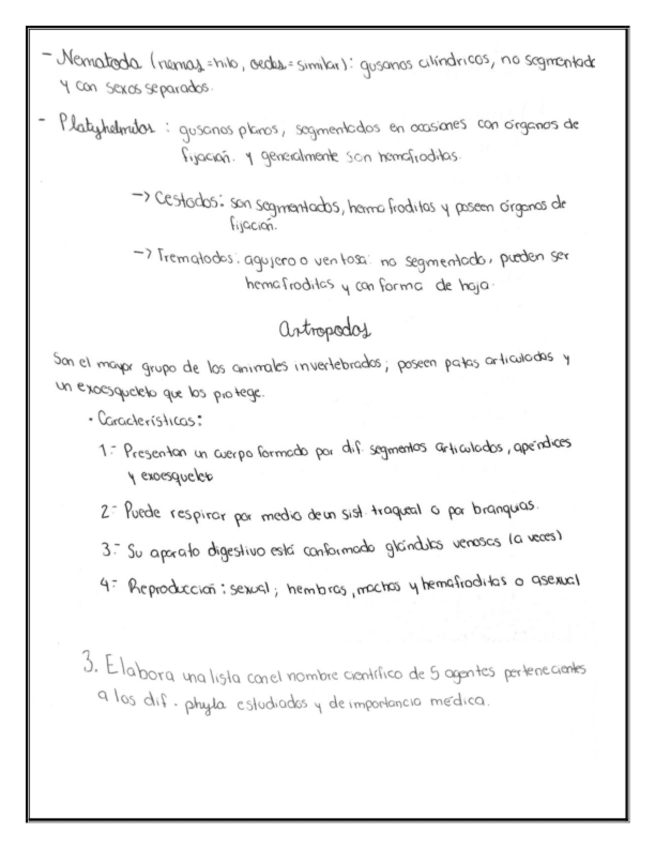 - Nematoda (nemas=hilo, oedes=similar): gusanos cilíndricos, no segmentado
y con sexos separados.
- Platyhelmintos : gusanos planos, segmentados en ocasiones con órganos de
fijación. y generalmente son hemafroditas.
-> Cestodos: son segmentados, hermafroditas y poseen órganos de
fijación.
-> Trematodos: agujero o ventosa: no segmentado, pueden ser
hemafroditas y con forma de hoja.
Artropodos
Son el mayor grupo de los animales invertebrados; poseen patas articuladas y
un exoesqueleto que los protege.
• Características:
1.- Presentan un cuerpo formado por dif. segmentos articulados, apéndices
y exoesqueleto
2- Puede respirar por medio de un sist. traqueal o por branquias.
3.- Su aparato digestivo está conformado glándulas venosas (a veces)
4- Reproducción: sexual; hembras, machos y hemafroditas o asexual
3. Elabora una lista con el nombre científico de 5 agentes pertenecientes
a los dif. phyla estudiados y de importancia médica.